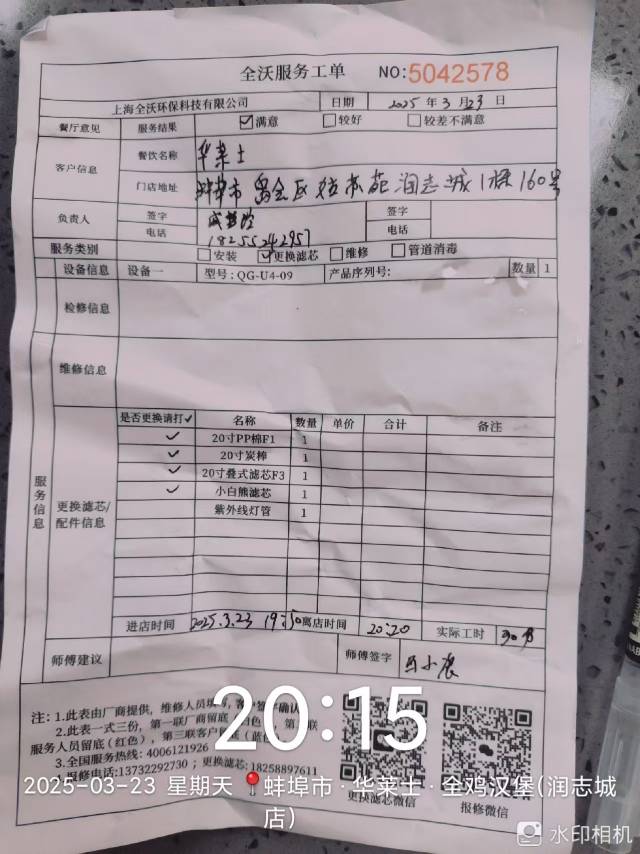 全沃服务工单 NO:5042578
上海全沃环保科技有限公司 日期 2025年3月23日
餐厅意见 服务结果 ☑满意 □较好 □较差不满意
客户信息 餐饮名称 华莱士
门店地址 蚌埠市禹会区 润志城1栋160号
负责人 签字 签字
电话 18255242957 电话
服务类别 □安装 ☑更换滤芯 □维修 □管道消毒
设备信息 设备一 型号:QG-U4-09 产品序列号: 数量 1
检修信息
维修信息
服务信息
更换滤芯/配件信息
是否更换请打✓ 名称 数量 单价 合计 备注
✓ 20寸PP棉F1 1
✓ 20寸炭棒 1
✓ 20寸叠式滤芯F3 1
✓ 小白熊滤芯 1
紫外线灯管 1
进店时间 2025.3.23 19:50 离店时间 20:20 实际工时 30分
师傅建议 师傅签字
注:1.此表由厂商提供,维修人员填
2.此表一式三份,第一联厂商留底
服务人员留底(红色),第三联客户
3.全国服务热线:4006121926
4.报修电话:13732292730 ;更换滤芯:18258897611
更换滤芯微信 报修微信
20:15
2025-03-23 星期天 蚌埠市·华莱士·全鸡汉堡(润志城
店)
水印相机